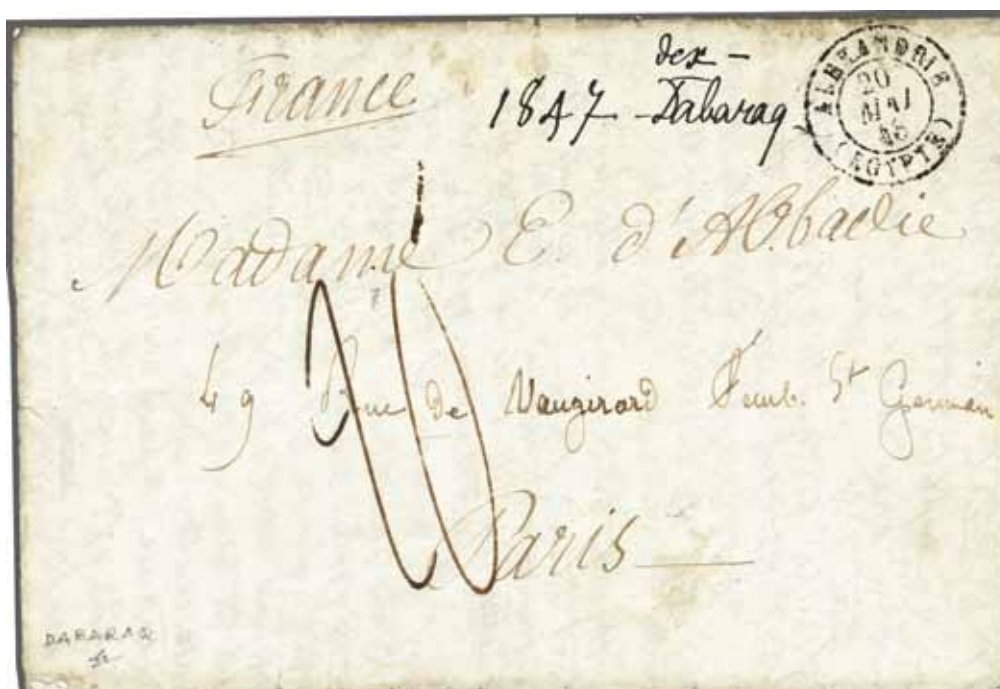 France
dex -
1847 - Dabaraq
ALEXANDRIE
20
MAI
(EGYPTE)
Madame E. d'Abbadie
20
49 Rue de Vaugirard Faub. St Germain
Paris
DABARAQ